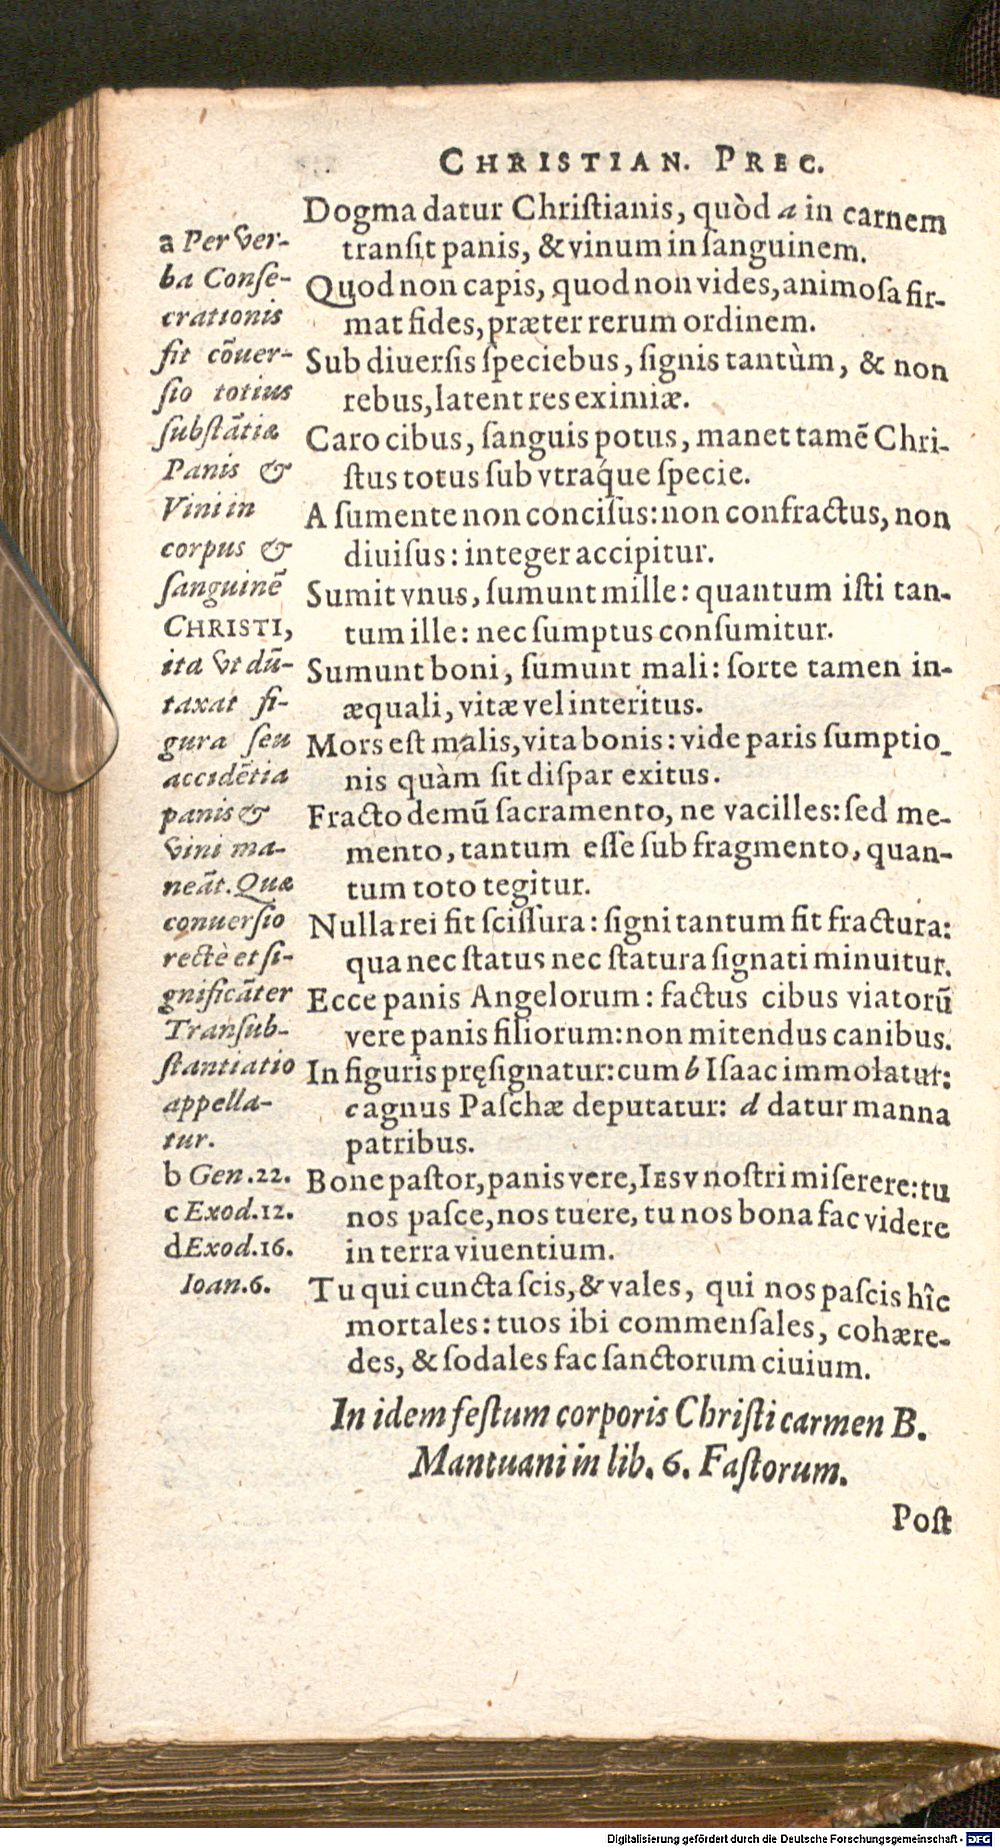 CHRISTIAN. PREC.
Dogma datur Chriſtianis, quòd a in carnem
tranſit panis, & vinum in ſanguinem.
Quod non capis, quod non vides, animoſa fir-
mat fides, præter rerum ordinem.
Sub diuerſis ſpeciebus, ſignis tantùm, & non
rebus, latent res eximiæ.
Caro cibus, ſanguis potus, manet tamẽ Chri-
ſtus totus ſub vtraq́ue ſpecie.
A ſumente non conciſus: non confractus, non
diuiſus: integer accipitur.
Sumit vnus, ſumunt mille: quantum iſti tan-
tum ille: nec ſumptus conſumitur.
Sumunt boni, ſumunt mali: ſorte tamen in-
æquali, vitæ vel interitus.
Mors eſt malis, vita bonis: vide paris ſumptio-
nis quàm ſit diſpar exitus.
Fracto demũ ſacramento, ne vacilles: ſed me-
mento, tantum eſſe ſub fragmento, quan-
tum toto tegitur.
Nulla rei fit ſciſſura: ſigni tantum fit fractura:
qua nec ſtatus nec ſtatura ſignati minuitur.
Ecce panis Angelorum: factus cibus viatorũ
vere panis filiorum: non mitendus canibus.
In figuris pręſignatur: cum b Iſaac immolatur:
c agnus Paſchæ deputatur: d datur manna
patribus.
Bone paſtor, panis vere, IESV noſtri miſerere: tu
nos paſce, nos tuere, tu nos bona fac videre
in terra viuentium.
Tu qui cuncta ſcis, & vales, qui nos paſcis hîc
mortales: tuos ibi commenſales, cohære-
des, & ſodales fac ſanctorum ciuium.
a Per Ver-
ba Conſe-
crationis
fit cõuer-
ſio totius
ſubſtãtiæ
Panis &
Vini in
corpus &
ſanguinẽ
CHRISTI,
ita Vt dũ-
taxat fi-
gura ſeu
accidẽtia
panis &
Vini ma-
neãt. Quæ
conuerſio
rectè et ſi-
gnificãter
Tranſub-
ſtantiatio
appella-
tur.
b Gen. 22.
c Exod. 12.
d Exod. 16.
Ioan. 6.
In idem feſtum corporis Chriſti carmen B.
Mantuani in lib. 6. Faſtorum.
Poſt
Digitalisierung gefördert durch die Deutsche Forschungsgemeinschaft - DFG